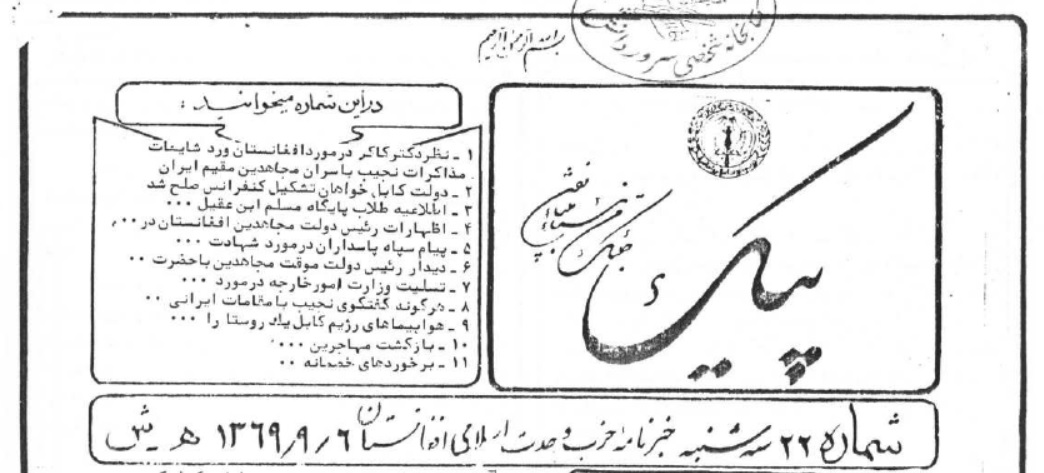 بسم الله الرحمن الرحیم
کتابخانه شخصی سرور دانش
دراین شماره میخوانید :
۱ ـ نظر دکتر کاکر در مورد افغانستان ورد شایعات
مذاکرات نجیب با سران مجاهدین مقیم ایران
۲ ـ دولت کابل خواهان تشکیل کنفرانس صلح شد
۳ ـ اطلاعیه طلاب پایگاه مسلم ابن عقیل ۰۰۰
۴ ـ اظهارات رئیس دولت مجاهدین افغانستان در ۰۰۰
۵ ـ پیام سپاه پاسداران درمورد شهادت ۰۰۰
۶ ـ دیدار رئیس دولت موقت مجاهدین باحضرت ۰۰
۷ ـ تسلیت وزارت امورخارجه درمورد ۰۰۰
۸ ـ هرگونه گفتگوی نجیب بامقامات ایرانی ۰۰
۹ ـ هواپیماهای رژیم کابل یک روستا را ۰۰۰
۱۰ ـ بازگشت مهاجرین ۰۰۰۰
۱۱ ـ برخوردهای خصمانه ۰۰
پیک
شماره ۲۲ سه شنبه خبرنامه حزب وحدت اسلامی افغانستان ۱۳۶۹/۹/۶ هـ ش